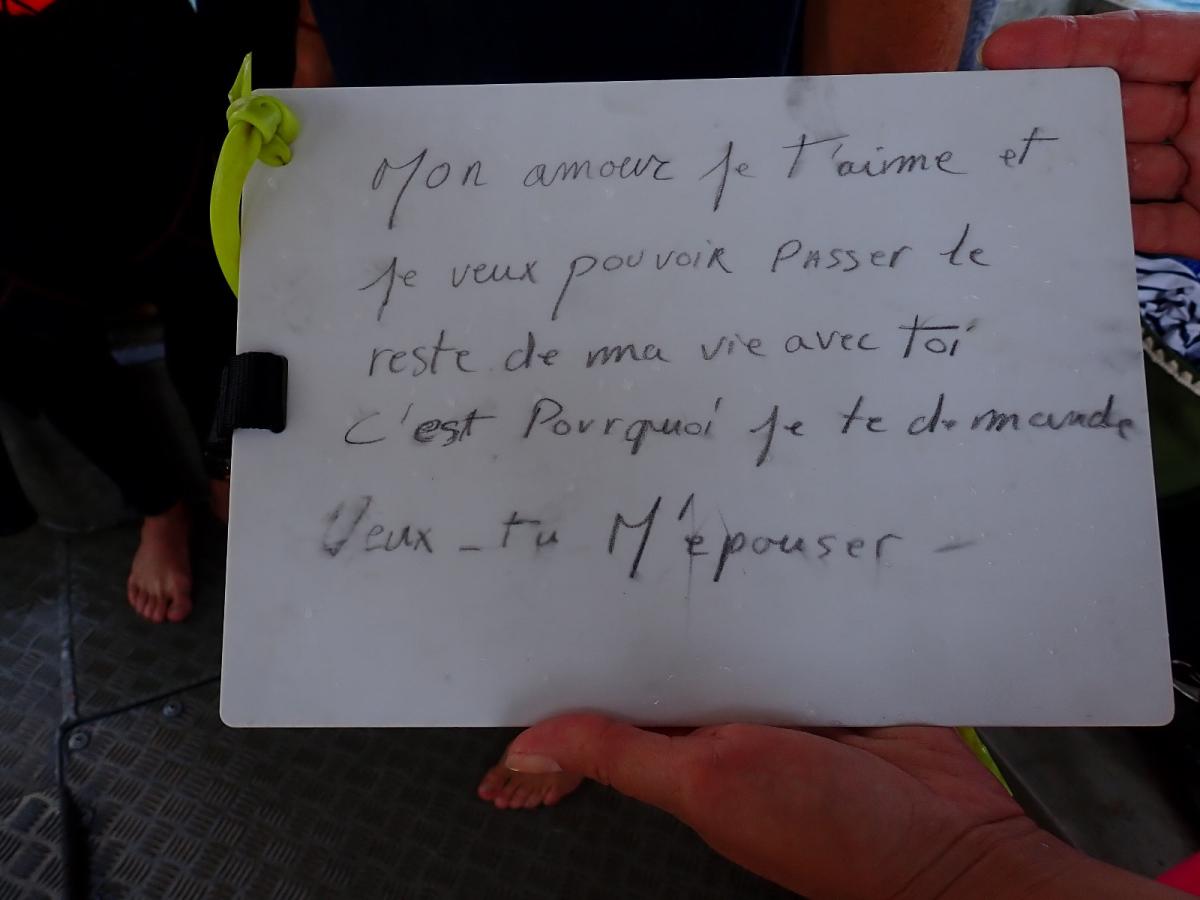 Mon amour je t'aime et
je veux pouvoir passer le
reste de ma vie avec toi
c'est Pourquoi je te demande
Veux-tu M'épouser -